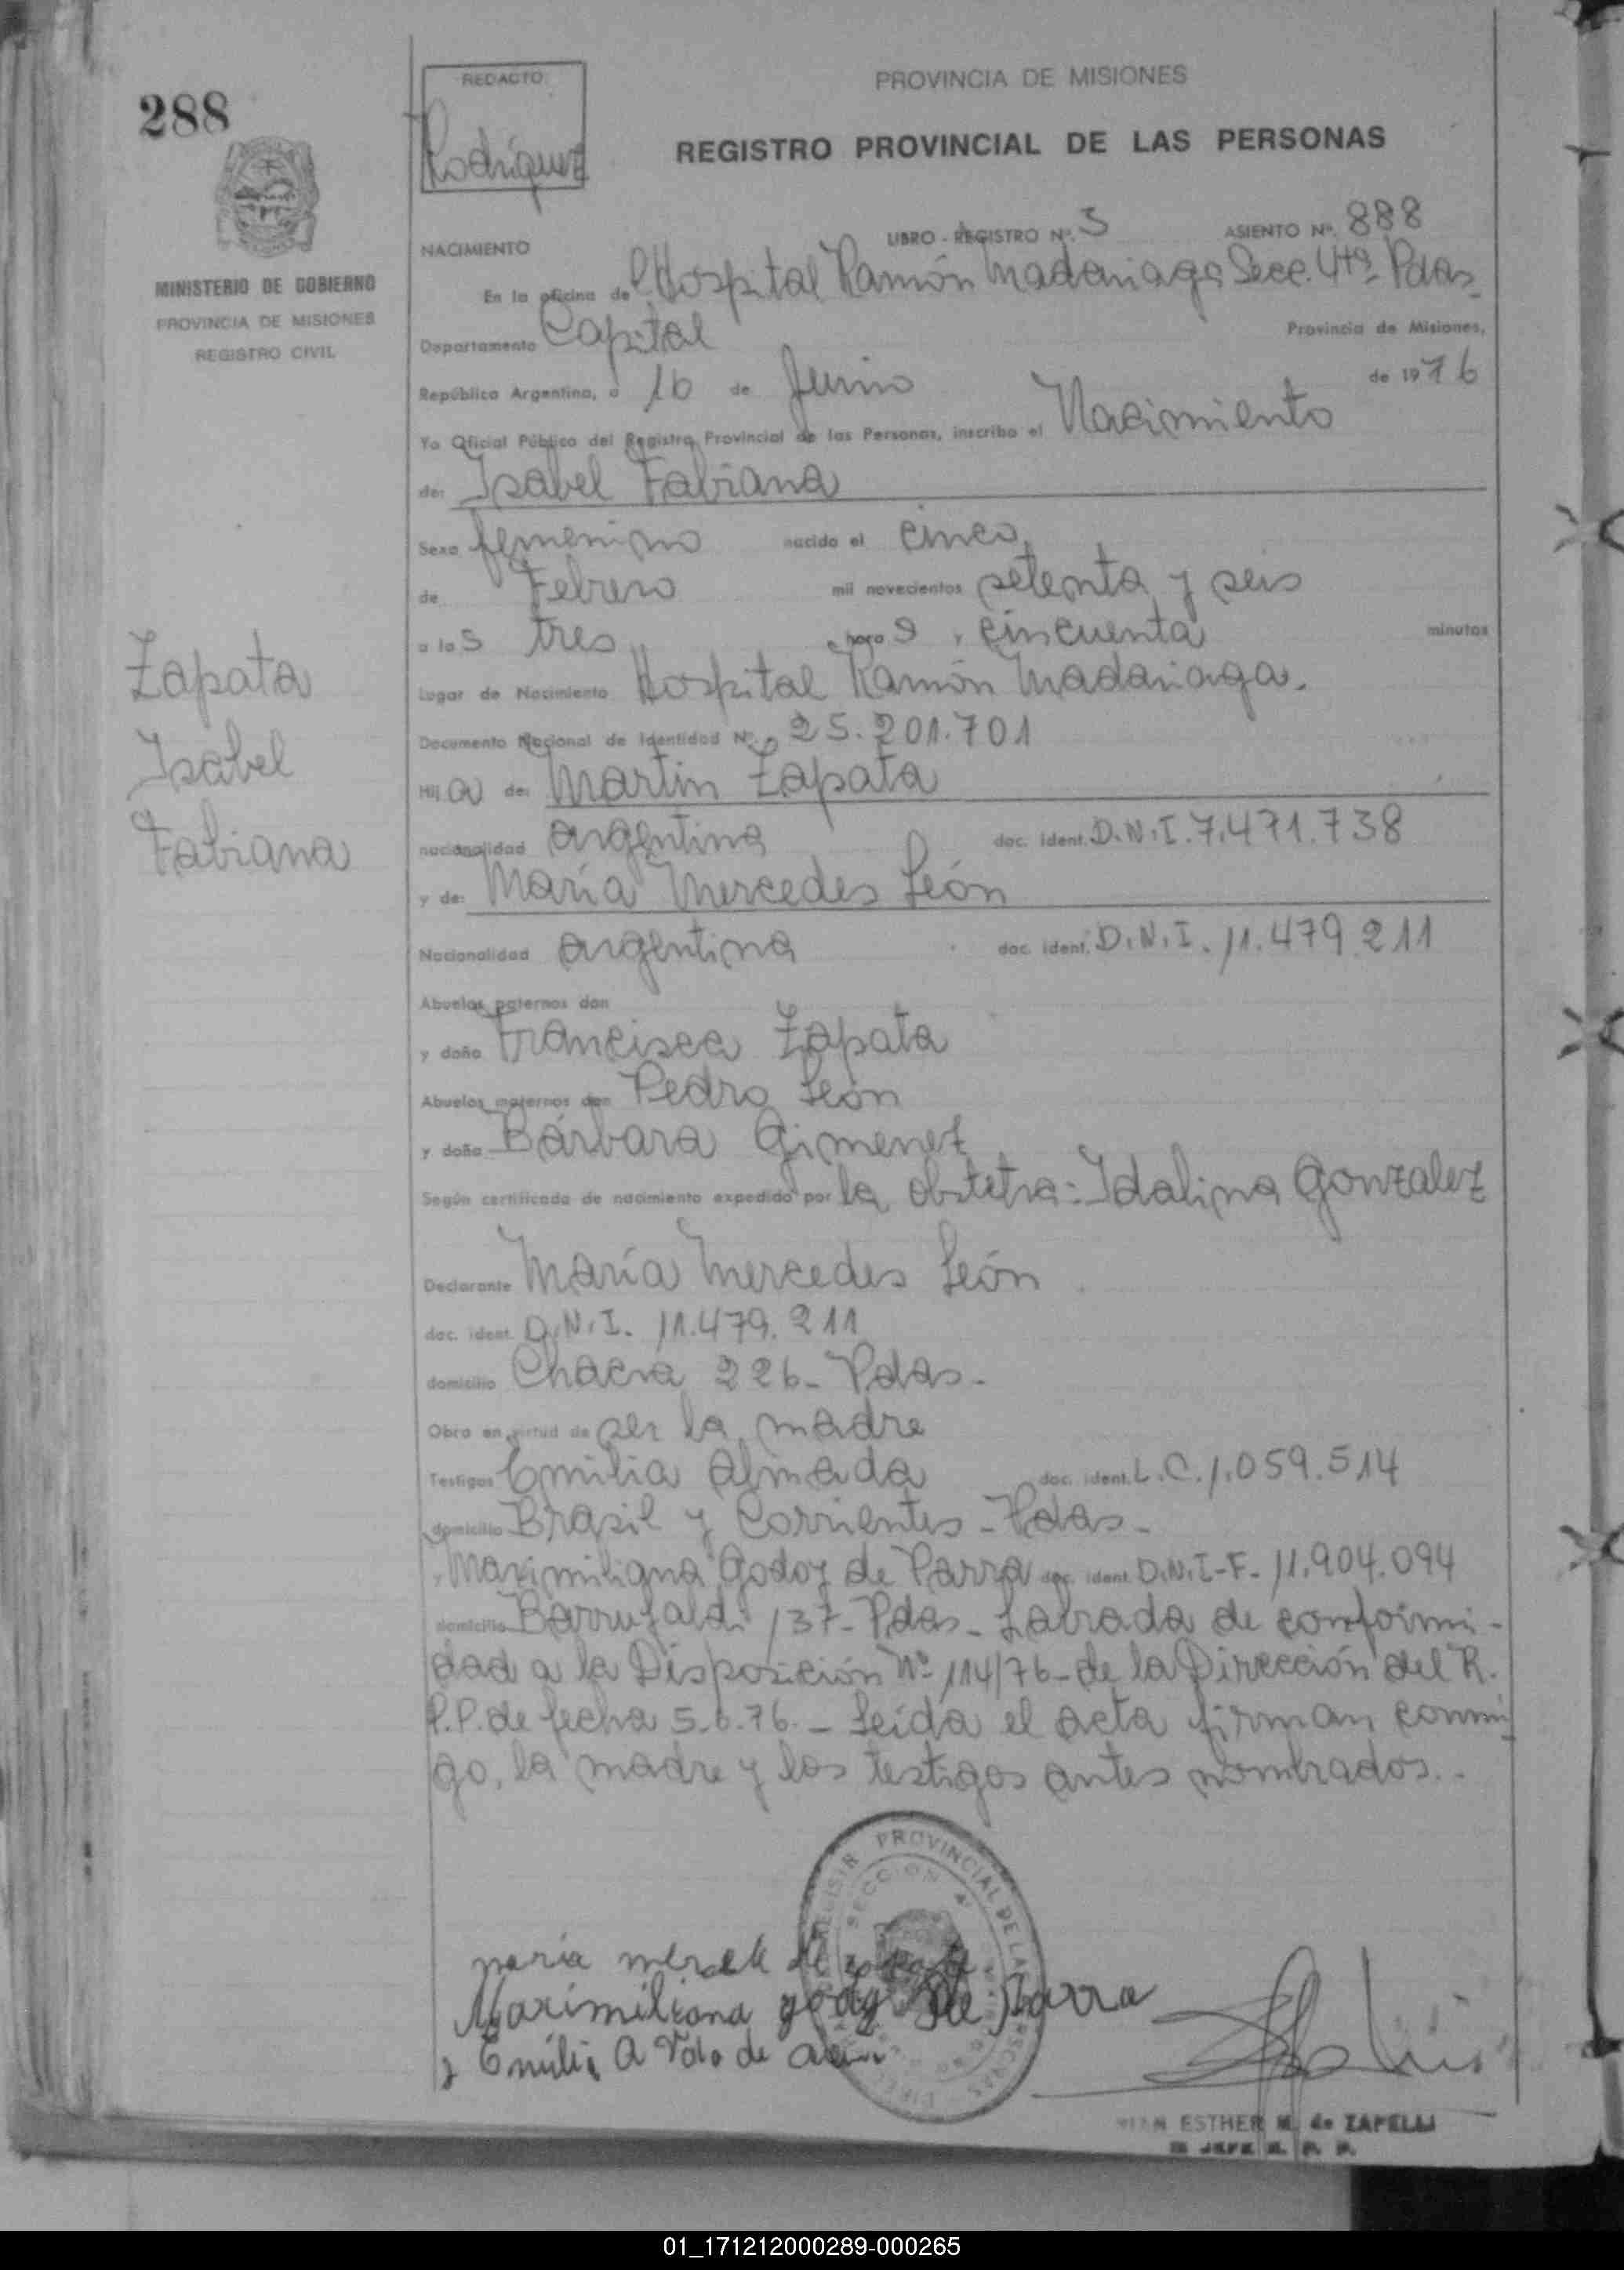 288
REDACTO
Rodríguez
PROVINCIA DE MISIONES
REGISTRO PROVINCIAL DE LAS PERSONAS
MINISTERIO DE GOBIERNO
PROVINCIA DE MISIONES
REGISTRO CIVIL
NACIMIENTO LIBRO - REGISTRO Nº. 3 ASIENTO Nº. 888
En la oficina del Hospital Ramón Madariaga Secc. 4ta Pdas.
Departamento Capital Provincia de Misiones,
República Argentina, a 16 de Junio de 1976
Yo Oficial Público del Registro Provincial de las Personas, inscribo el Nacimiento
de: Isabel Fabiana
Sexo femenino nacido el cinco
de Febrero mil novecientos setenta y seis
a las tres horas, cincuenta minutos
Lugar de Nacimiento Hospital Ramón Madariaga.
Documento Nacional de Identidad Nº. 25.201.701
Hija de: Martin Zapata
nacionalidad argentina doc. ident. D.N.I. 7.471.738
y de: María Mercedes León
Nacionalidad argentina doc. ident. D.N.I. 11.479.211
Abuelos paternos don
y doña Francisca Zapata
Abuelos maternos don Pedro León
y doña Bárbara Gimenez
Según certificado de nacimiento expedido por la obstetra: Idalina Gonzalez
Declarante María Mercedes León
doc. ident. D.N.I. 11.479.211
domicilio Chacra 226- Pdas.-
Obra en virtud de ser la madre
Testigos Emilia Almada doc. ident. L.C. 1.059.514
domicilio Brasil y Corrientes - Pdas -
y Maximiliana Godoy de Parra doc. ident. D.N.I-F- 11.904.094
domicilio Barrufaldi 137- Pdas - Labrada de conformi-
dad a la Disposición Nº 114/76- de la Dirección del R.
P.P. de fecha 5.6.76.- Leída el acta firman conmi-
go, la madre y los testigos antes nombrados.-
Zapata
Isabel
Fabiana
PROVINCIAL DE LAS PERSONAS
SECCION 4ª
maria
Maximiliana godoy de parra
y Emilia A de
ESTHER M. de ZAPELLI
JEFE R. P. P.
01_171212000289-000265